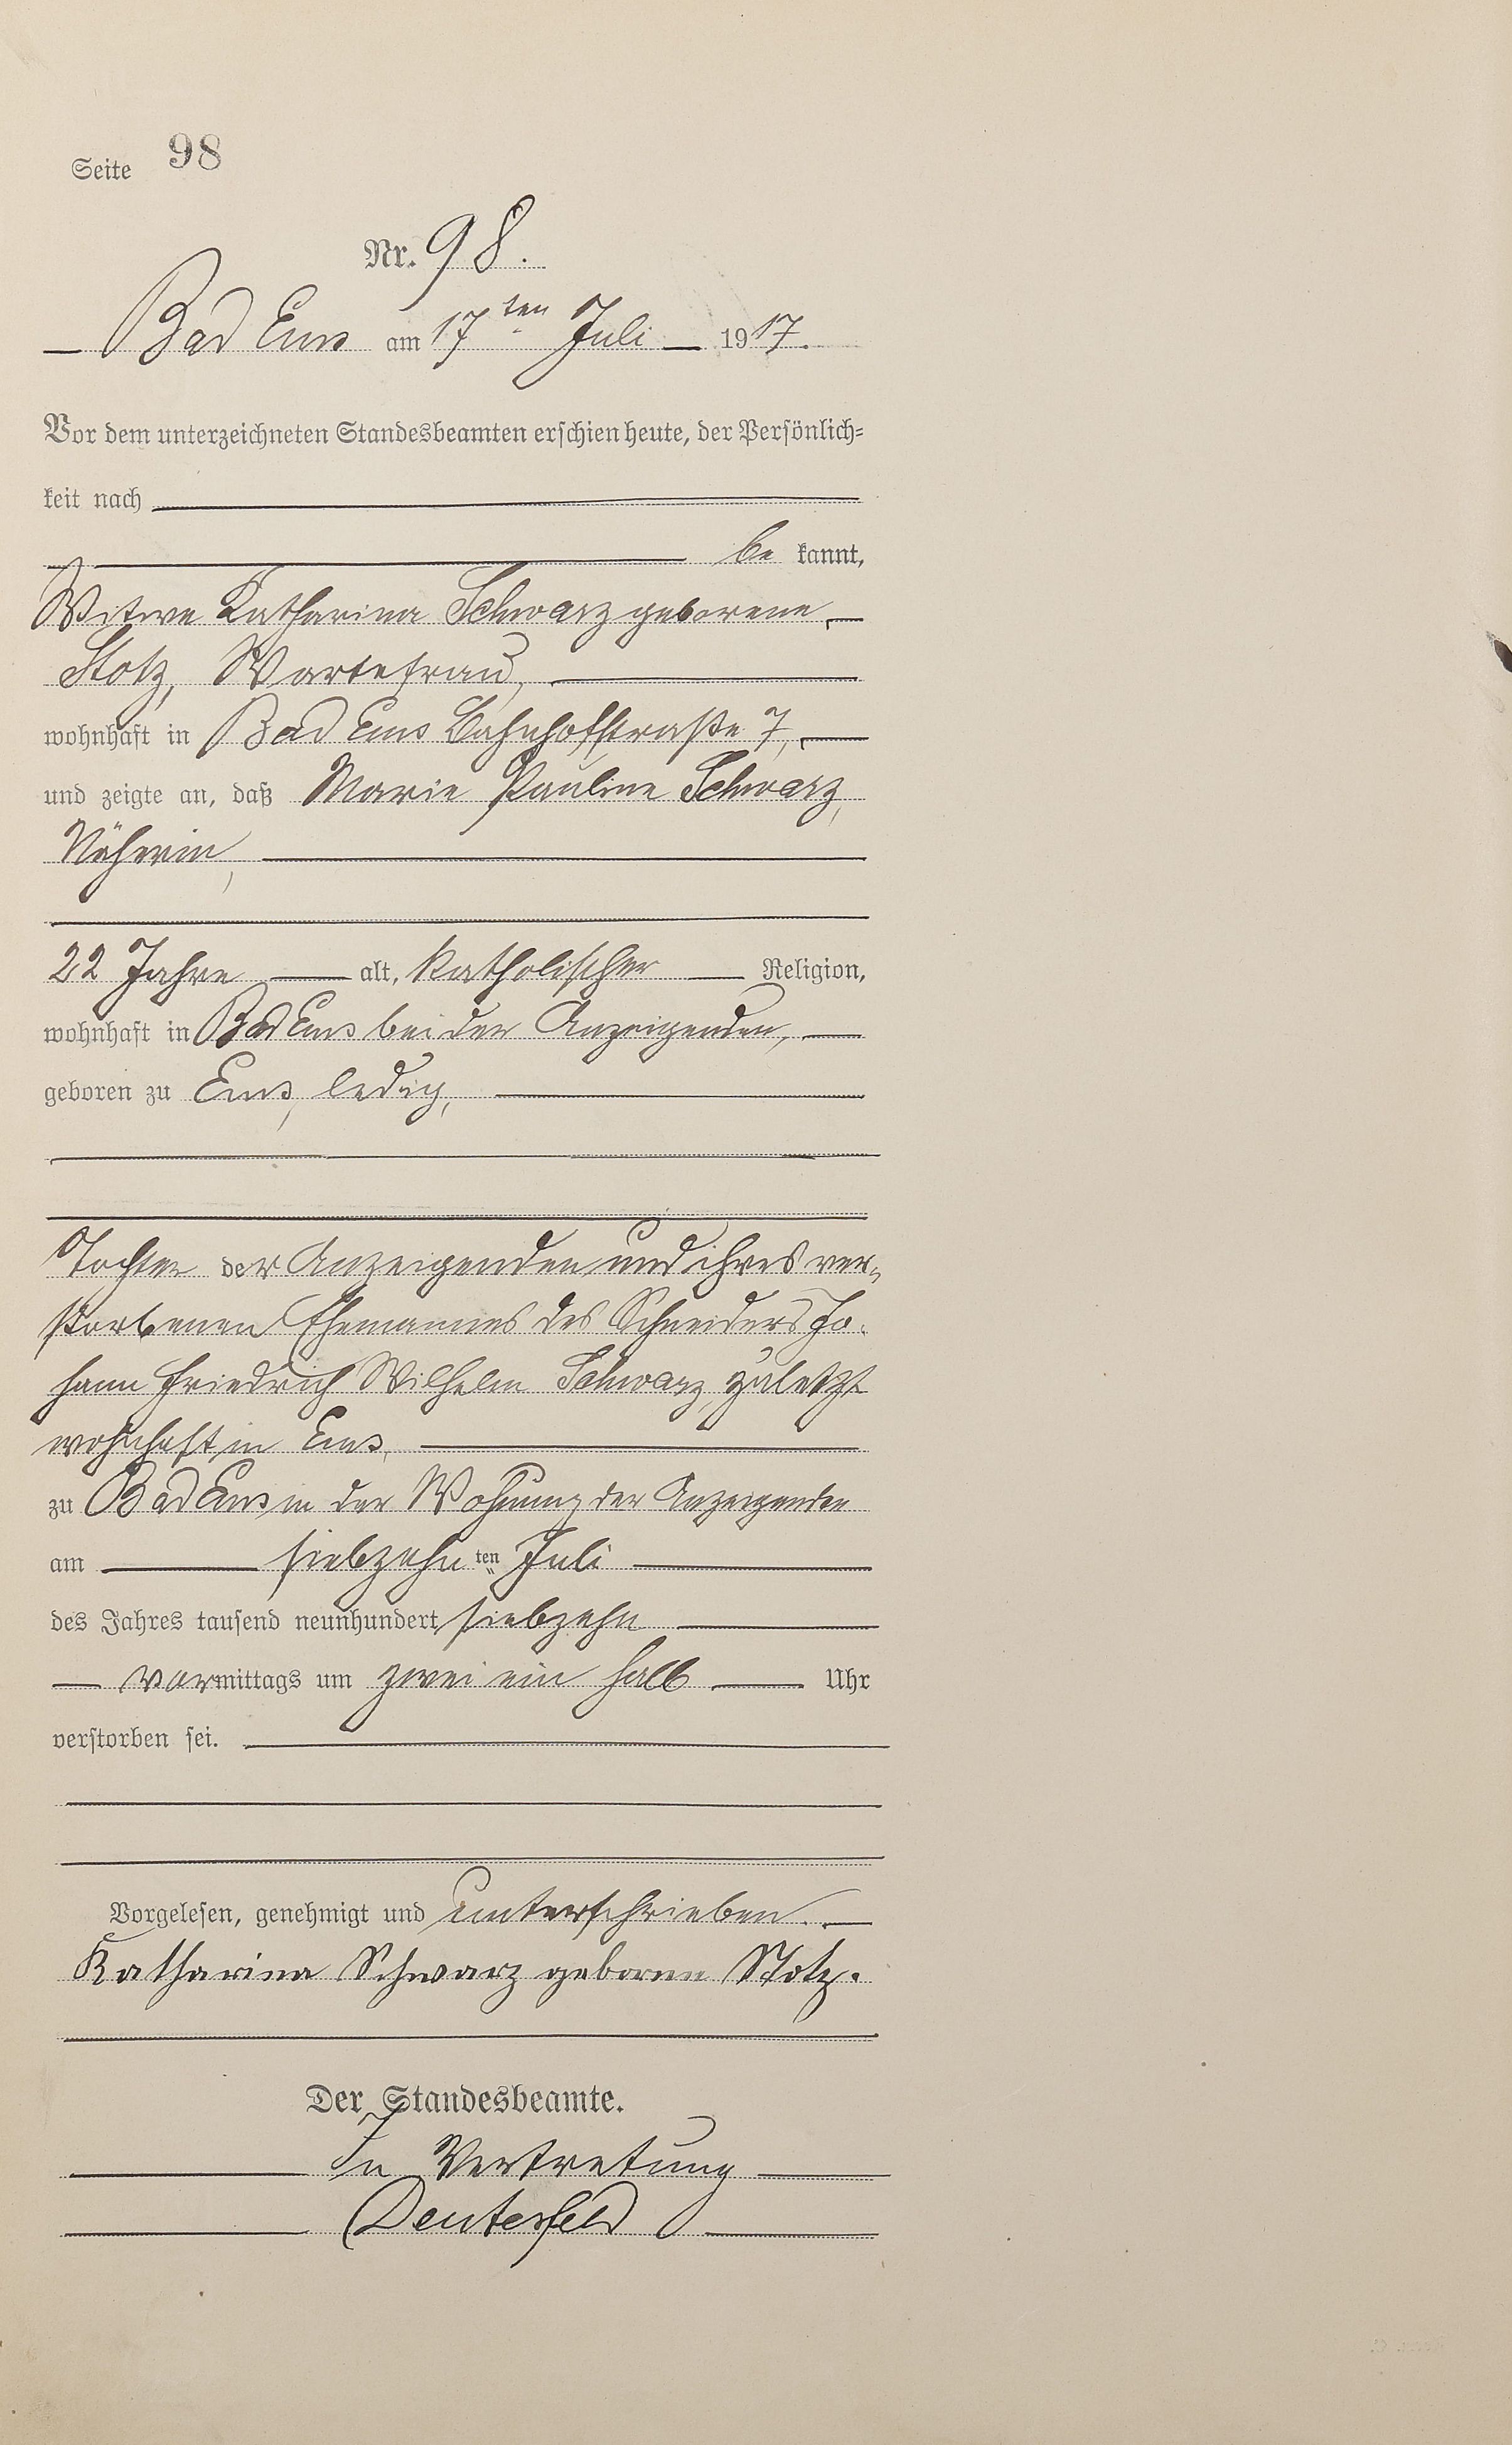 Seite 98
Nr. 98.
Bad Ems am 17ten Juli 1917.
Vor dem unterzeichneten Standesbeamten erschien heute, der Persönlich-
keit nach
be kannt,
Witwe Katharina Schwarz geborene
Stotz, Wartefrau,
wohnhaft in Bad Ems Bahnhofstraße 7,
und zeigte an, daß Marie Pauline Schwarz,
Näherin,
22 Jahre alt, katholischer Religion,
wohnhaft in Bad Ems bei der Anzeigenden,
geboren zu Ems, ledig,
Tochter der Anzeigenden und ihres ver-
storbenen Ehemannes des Schneiders Jo-
hann Friedrich Wilhelm Schwarz, zuletzt
wohnhaft in Ems,
zu Bad Ems in der Wohnung der Anzeigenden
am siebzehnten Juli
des Jahres tausend neunhundert siebzehn
vormittags um zwei ein halb Uhr
verstorben sei.
Vorgelesen, genehmigt und unterschrieben.
Katharina Schwarz geborene Stotz.
Der Standesbeamte.
In Vertretung